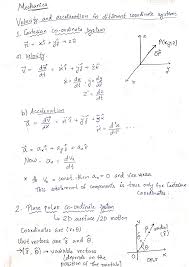 Mechanics
Velocity and acceleration in different coordinate systems
1. Cartesian co-ordinate system
r⃗ = xî + yĵ + zk̂
a) Velocity
v⃗ = dr⃗/dt = ẋî + ẏĵ + żk̂
ẋ = dx/dt, ẏ = dy/dt
ż = dz/dt
z
P(x,y,z)
r⃗
y
x
b) Acceleration
a⃗ = dv⃗/dt = ẍî + ÿĵ + z̈k̂
a⃗ = aₓî + a_yĵ + a_zk̂
Now, aₓ = dvₓ/dt
if vₓ = const. then aₓ = 0 and vice versa
This statement of components is true only for Cartesian Coordinates.
2. Plane Polar co-ordinate system
↳ 2D surface / 2D motion
Coordinates are (r, θ)
Unit vectors are r̂ and θ̂.
*(r̂, θ̂) → variable vectors
(depends on the position of the particle)